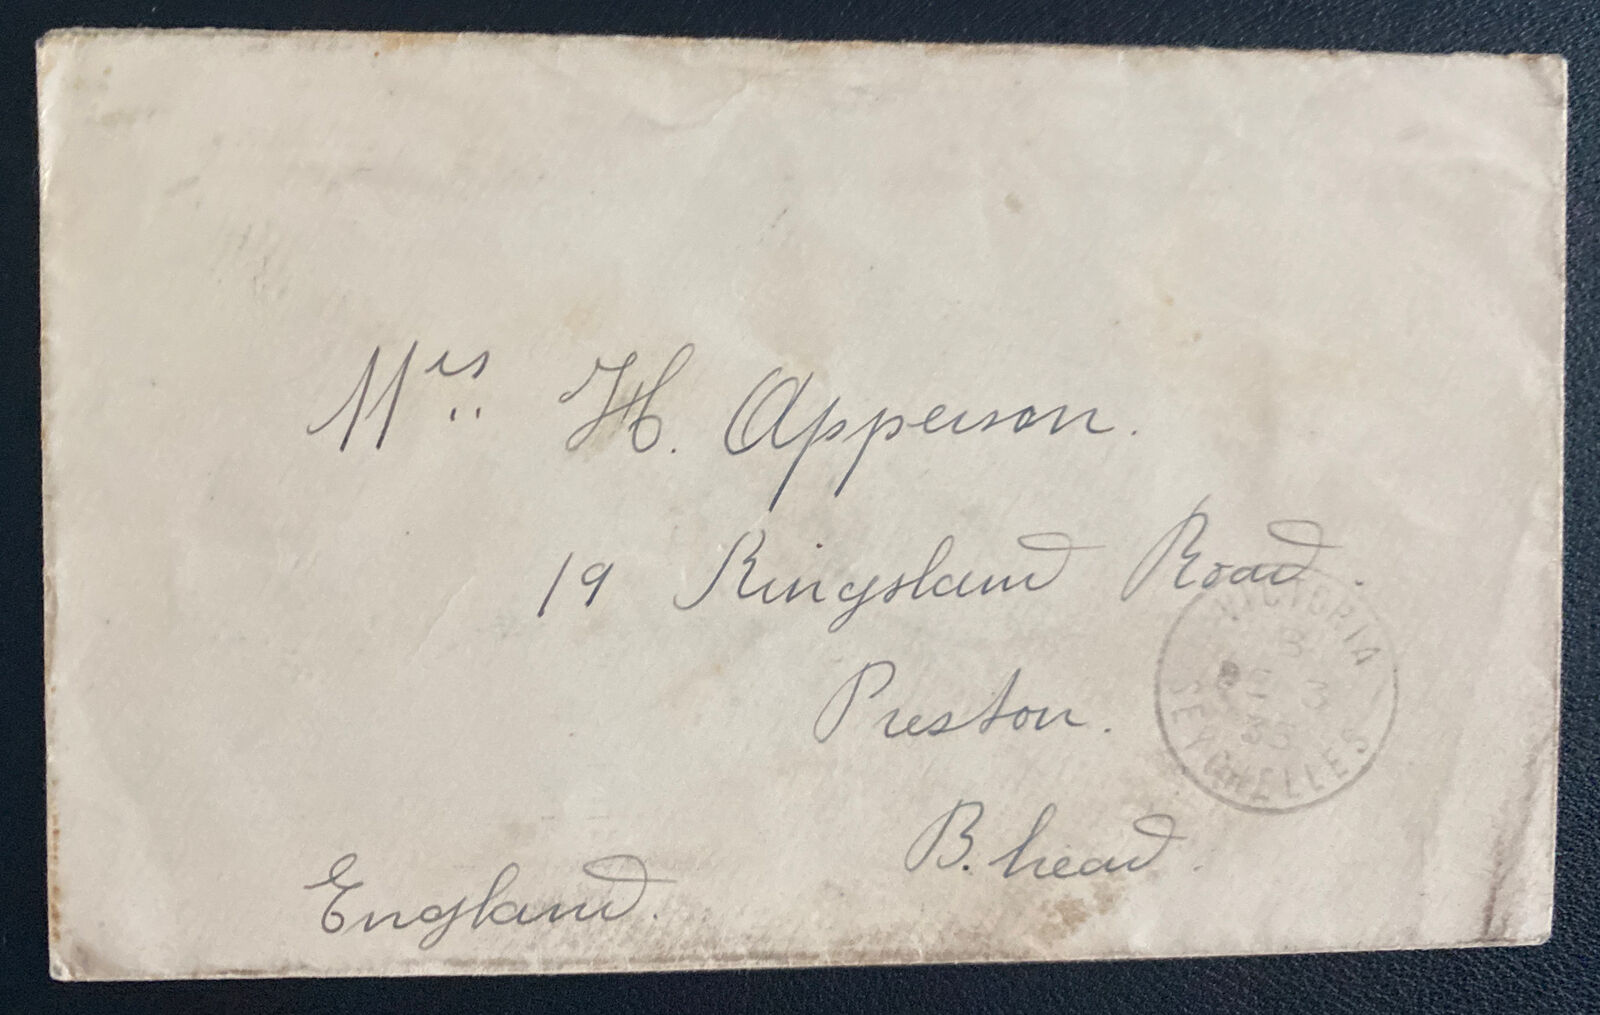 Mrs. H. Apperson.
19 Kingsland Road.
Preston.
B. head.
England.
VICTORIA
B
3
35
SEYCHELLES